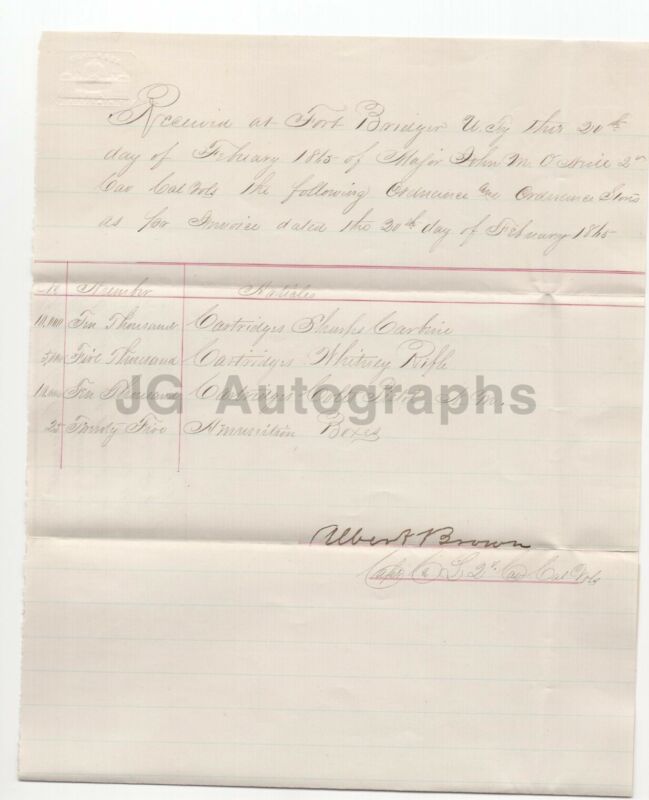 Received at Fort Bridger U. Ty this 20th
day of Febuary 1865 of Major John M. O'Neile 2nd
Cav Cal Vols the following Ordnance and Ordnance Stores
as per Invoice dated the 20th day of February 1865
No Number Articles
10,000 Ten Thousand Cartridges Sharks Carbine
5,000 Five Thousand Cartridges Whitney Rifle
10,000 Ten Thousand Cartridges Colts
25 Twenty Five Ammunition Boxes
JG Autographs
Albert Brown
Capt Co L 2d Cav Cal Vols